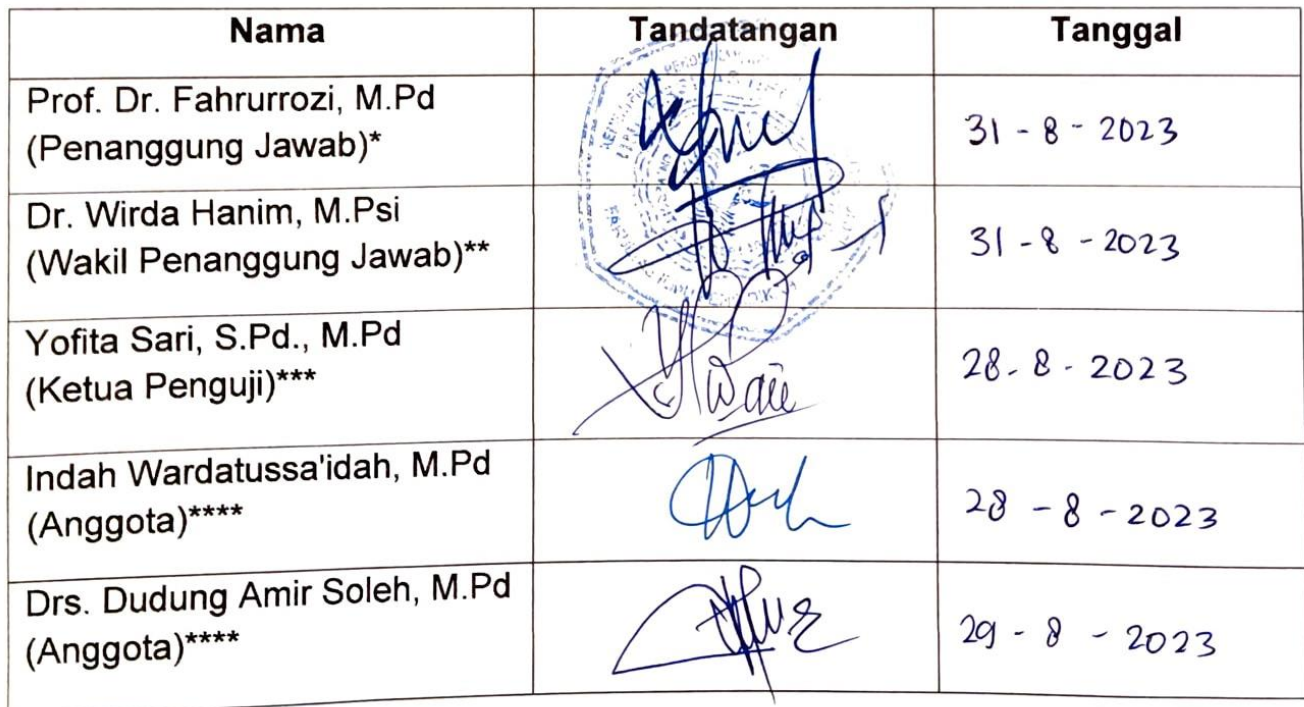 Nama Tandatangan Tanggal
Prof. Dr. Fahrurrozi, M.Pd
(Penanggung Jawab)*
31 - 8 - 2023
Dr. Wirda Hanim, M.Psi
(Wakil Penanggung Jawab)**
31 - 8 - 2023
Yofita Sari, S.Pd., M.Pd
(Ketua Penguji)***
28 - 8 - 2023
Indah Wardatussa'idah, M.Pd
(Anggota)****
28 - 8 - 2023
Drs. Dudung Amir Soleh, M.Pd
(Anggota)****
29 - 8 - 2023